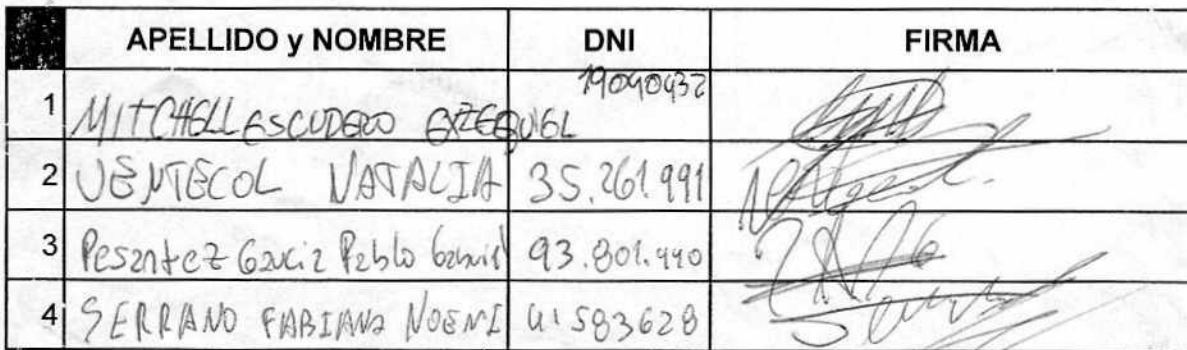 APELLIDO y NOMBRE DNI FIRMA
1 MITCHELL ESCUDERO EZEQUIEL 19040432
2 VENTECOL NATALIA 35.261.991
3 Pesantez Garcia Pablo Gabriel 93.801.440
4 SERRANO FABIANA NOEMI 41583628